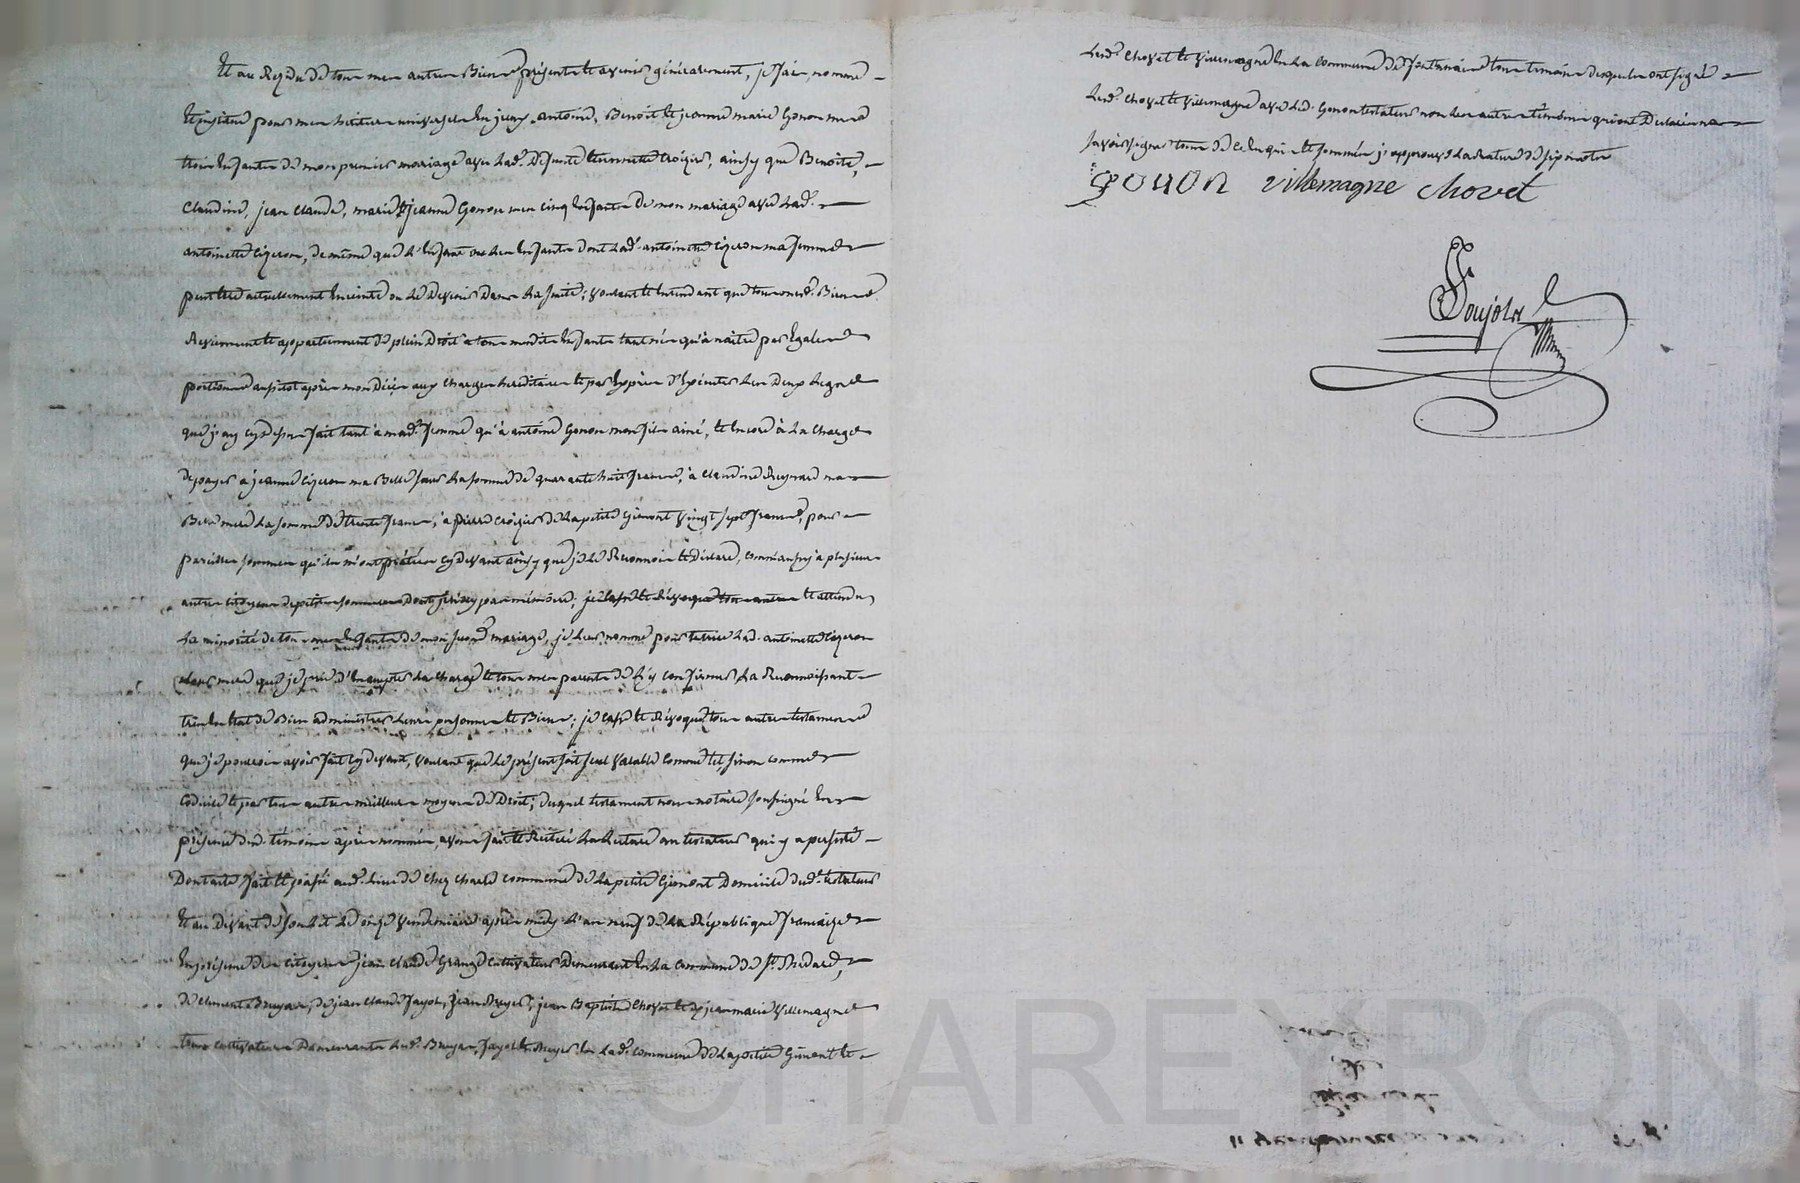 Et au Résidu de tous mes autres Biens présents et avenir généralement, je fais nomme
et institue pour mes héritiers universels en jceux, antoine, Benoit et jeanne marie Gonon mes
trois Enfants de mon premier mariage avec lad.e Defunte toinette Croizier, ainsy que Benoite,
Claudine, jean Claude, marie et jeanne Gonon mes cinq Enfants de mon mariage avec lad.e
antoinette Cizeron, de même que l'Enfant ou les Enfants dont lad.e antoinette Cizeron ma femme
peut être actuellement Enceinte ou le Devenir Dans la suite; voulant et entendant que tous mesd. Biens
Reviennent et appartiennent de plein Droit a tous mesdits Enfants tant nés qu'à naitre par Egales
portions aussitot après mon Décès aux charges héréditaires et par Exprès d'Exécuter les Deux Legs
que j'ay cy dessus fait tant à mad.e femme qu'à antoine Gonon mon fils ainé, et encore à la charge
de payer à jeanne Cizeron ma Belle sœur la somme de quarante huit francs, à Claudine Reynard ma
Belle mere la somme de trente francs, à pierre Croizier de la petite Gimont vingt sept francs, pour
pareilles sommes qu'ils m'ont prétées cy devant ainsy que je le Reconnois et déclare, comme aussy à plusieurs
autres citoyens de petites sommes Dont je
 et attendu
la minorité de tous mes Enfants de mon second mariage, je leur nomme pour tutrice lad. antoinette Cizeron
leur mere que je prie d'En accepter la charge et tous mes parents de l'y Confirmer la Reconnoissant
très En Etat de Bien administrer leurs personnes et Biens; je casse et Révoque tous autres testaments
que je pourrois avoir fait cy devant, voulant que le présent soit seul valable comme tel sinon comme
codicile et par tous autres meilleurs moyens de Droit; duquel testament nous notaire soussigné En
présence desd. témoins après nommés, avons fait et Réitéré la lecture au testateur qui y a persisté
Dont acte fait et passé aud. lieu de chez Charle commune de la petite Gimont Domicile dud. testateur
Et au devant de son Lit le onze vendemiaire après midy l'an neuf de la République française
En présence des citoyens jean Claude Grange Cultivateur Demeurant En la Commune de St. Médard,
de Clément Bruyas, de jean Claude Fayol, jean Bruyer, jean Baptiste Chovet et jean marie Villemagne
tous cultivateurs Demeurants lesd. Bruyas, Fayol et Bruyer En lad.e commune de la petite Gimont et
lesd. Chovet et Villemagne En la Commune de Fontanès tous témoins desquels ont signé
lesd. Chovet et Villemagne avec led. Gonon testateur non les autres témoins qui ont Déclaré ne
savoir signer tous de ce Enquis et sommés j'approuve la rature de six mots
gonon villemagne chovet
Poujols